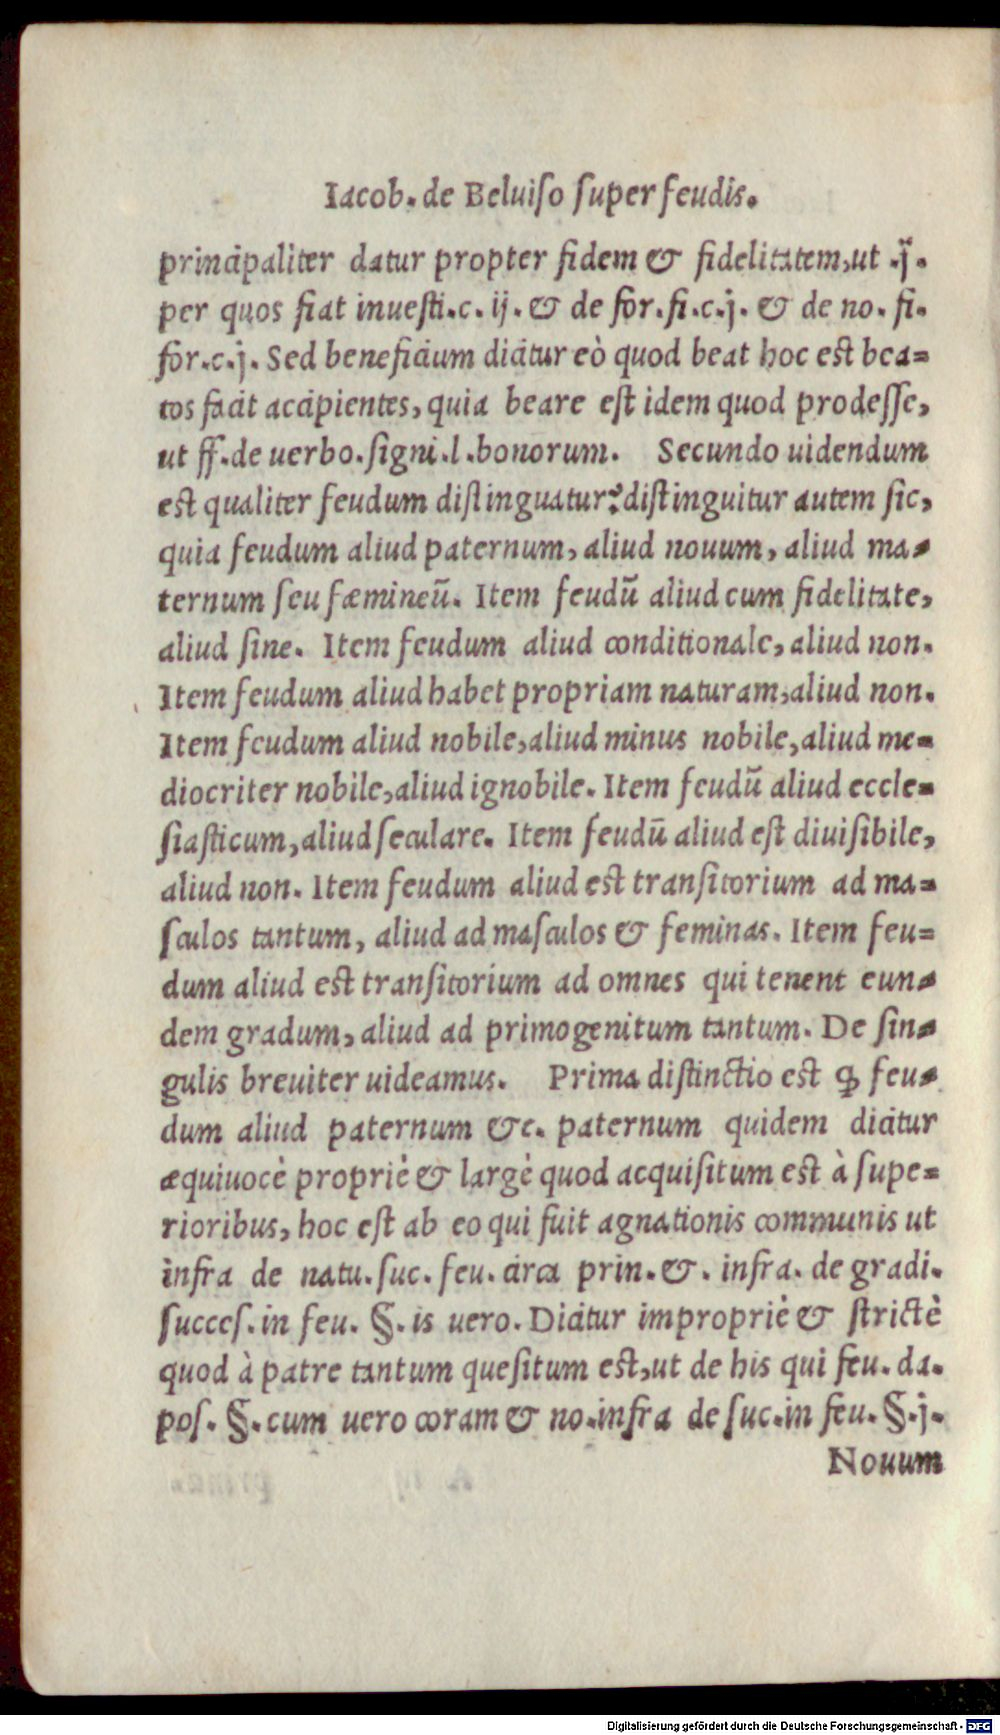 Iacob. de Beluiso super feudis.
principaliter datur propter fidem & fidelitatem, ut .j̈.
per quos fiat inuesti. c. ij. & de for. fi. c. j. & de no. fi.
for. c. j. Sed beneficium dicitur eò quod beat hoc est bea=
tos facit accipientes, quia beare est idem quod prodesse,
ut ff. de uerbo. signi. l. bonorum. Secundo uidendum
est qualiter feudum distinguatur? distinguitur autem sic,
quia feudum aliud paternum, aliud nouum, aliud ma=
ternum seu fæmineū. Item feudū aliud cum fidelitate,
aliud sine. Item feudum aliud conditionale, aliud non.
Item feudum aliud habet propriam naturam, aliud non.
Item feudum aliud nobile, aliud minus nobile, aliud me=
diocriter nobile, aliud ignobile. Item feudū aliud eccle=
siasticum, aliud seculare. Item feudū aliud est diuisibile,
aliud non. Item feudum aliud est transitorium ad ma=
sculos tantum, aliud ad masculos & feminas. Item feu=
dum aliud est transitorium ad omnes qui tenent eun=
dem gradum, aliud ad primogenitum tantum. De sin=
gulis breuiter uideamus. Prima distinctio est ꝙ feu=
dum aliud paternum &c. paternum quidem dicitur
æquiuocè propriè & largè quod acquisitum est à supe=
rioribus, hoc est ab eo qui fuit agnationis communis ut
infra de natu. suc. feu. circa prin. &. infra. de gradi.
succes. in feu. §. is uero. Dicitur impropriè & strictè
quod à patre tantum quesitum est, ut de his qui feu. da.
pos. §. cum uero coram & no. infra de suc. in feu. §. j.
Nouum
Digitalisierung gefördert durch die Deutsche Forschungsgemeinschaft - DFG